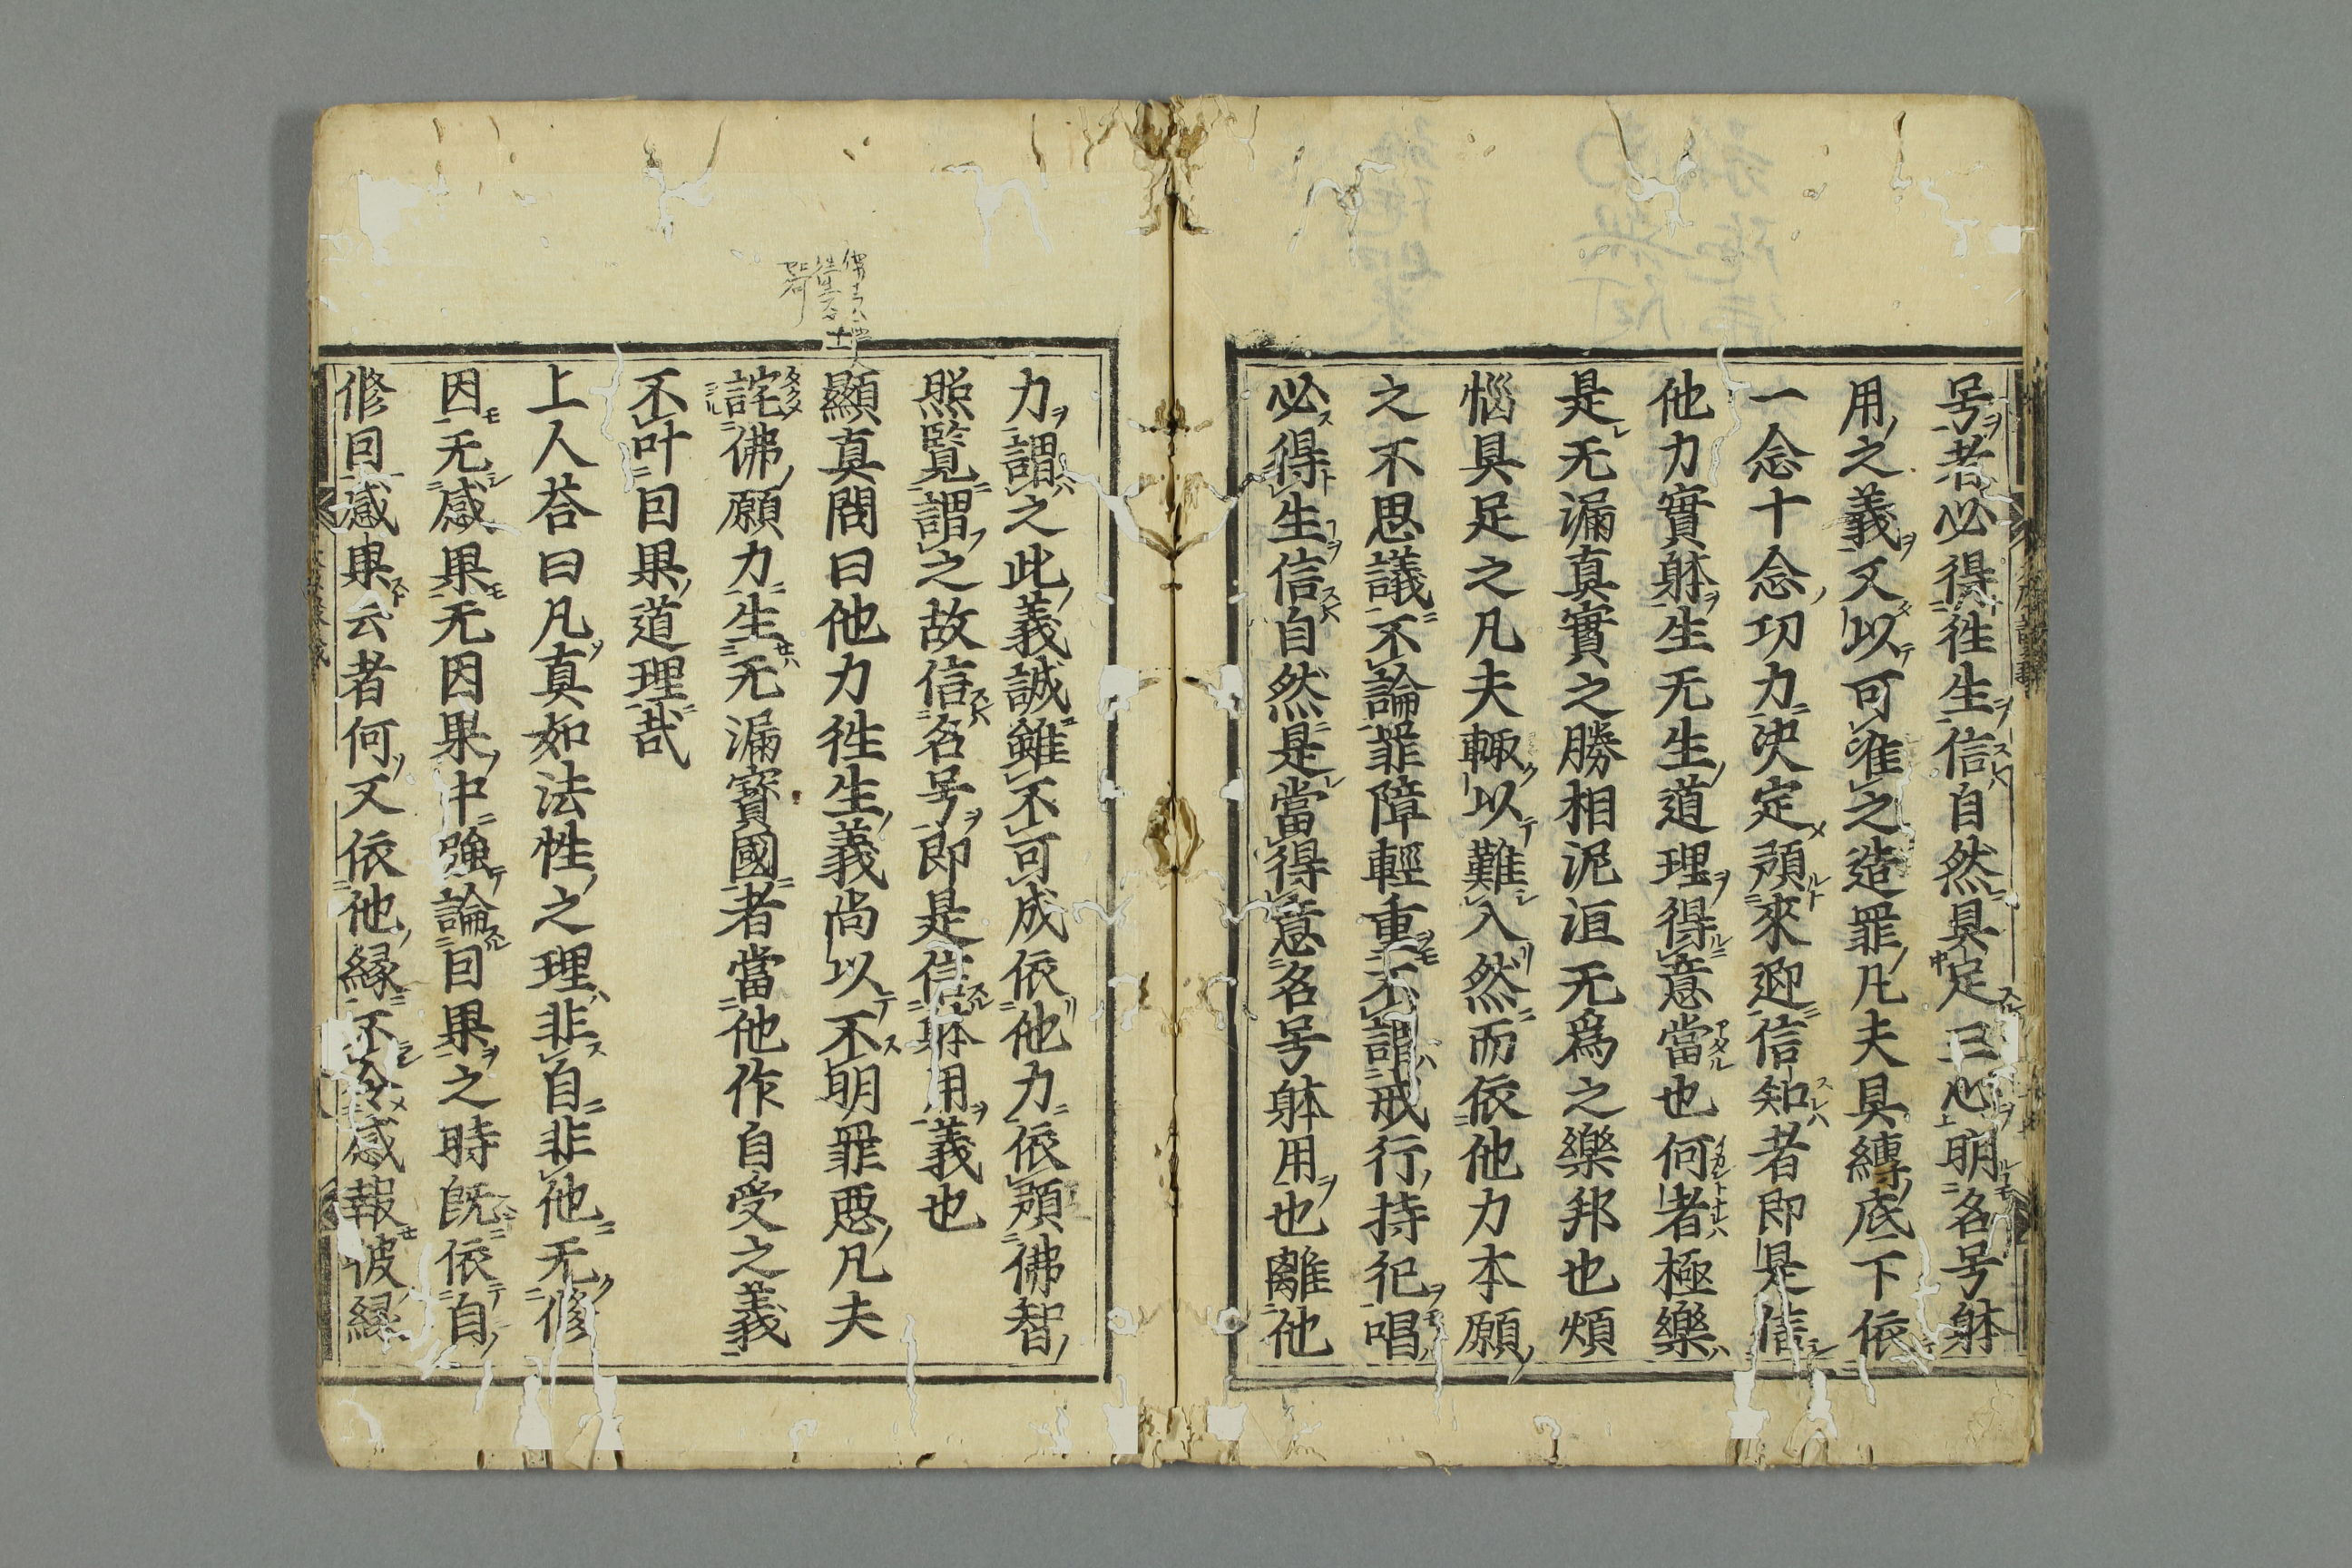 号者必得徃生信自然具足三心明名号躰
用之義又以可准之造罪凡夫具縛底下依
一念十念功力决定預來迎信知者即是信
他力實躰生无生道理得意當也何者極樂
是无漏真實之勝相泥洹无爲之樂邦也煩
惱具足之凡夫輙以難入然而依他力本願
之不思議不論罪障輕重不謂戒行持犯唱
必得生信自然是當得意名号躰用也離他
力謂之此義誠雖不可成依他力依預佛智
照覧謂之故信名号即是信躰用義也
顯真問曰他力徃生義尚以不明罪悪凡夫
詫佛願力生无漏寳國者當他作自受之義
不叶囙果道理哉
上人荅曰凡真如法性之理非自非他无修
因无感果无因果中強論囙果之時既依自
修囙感果云者何又依他縁不感報彼縁